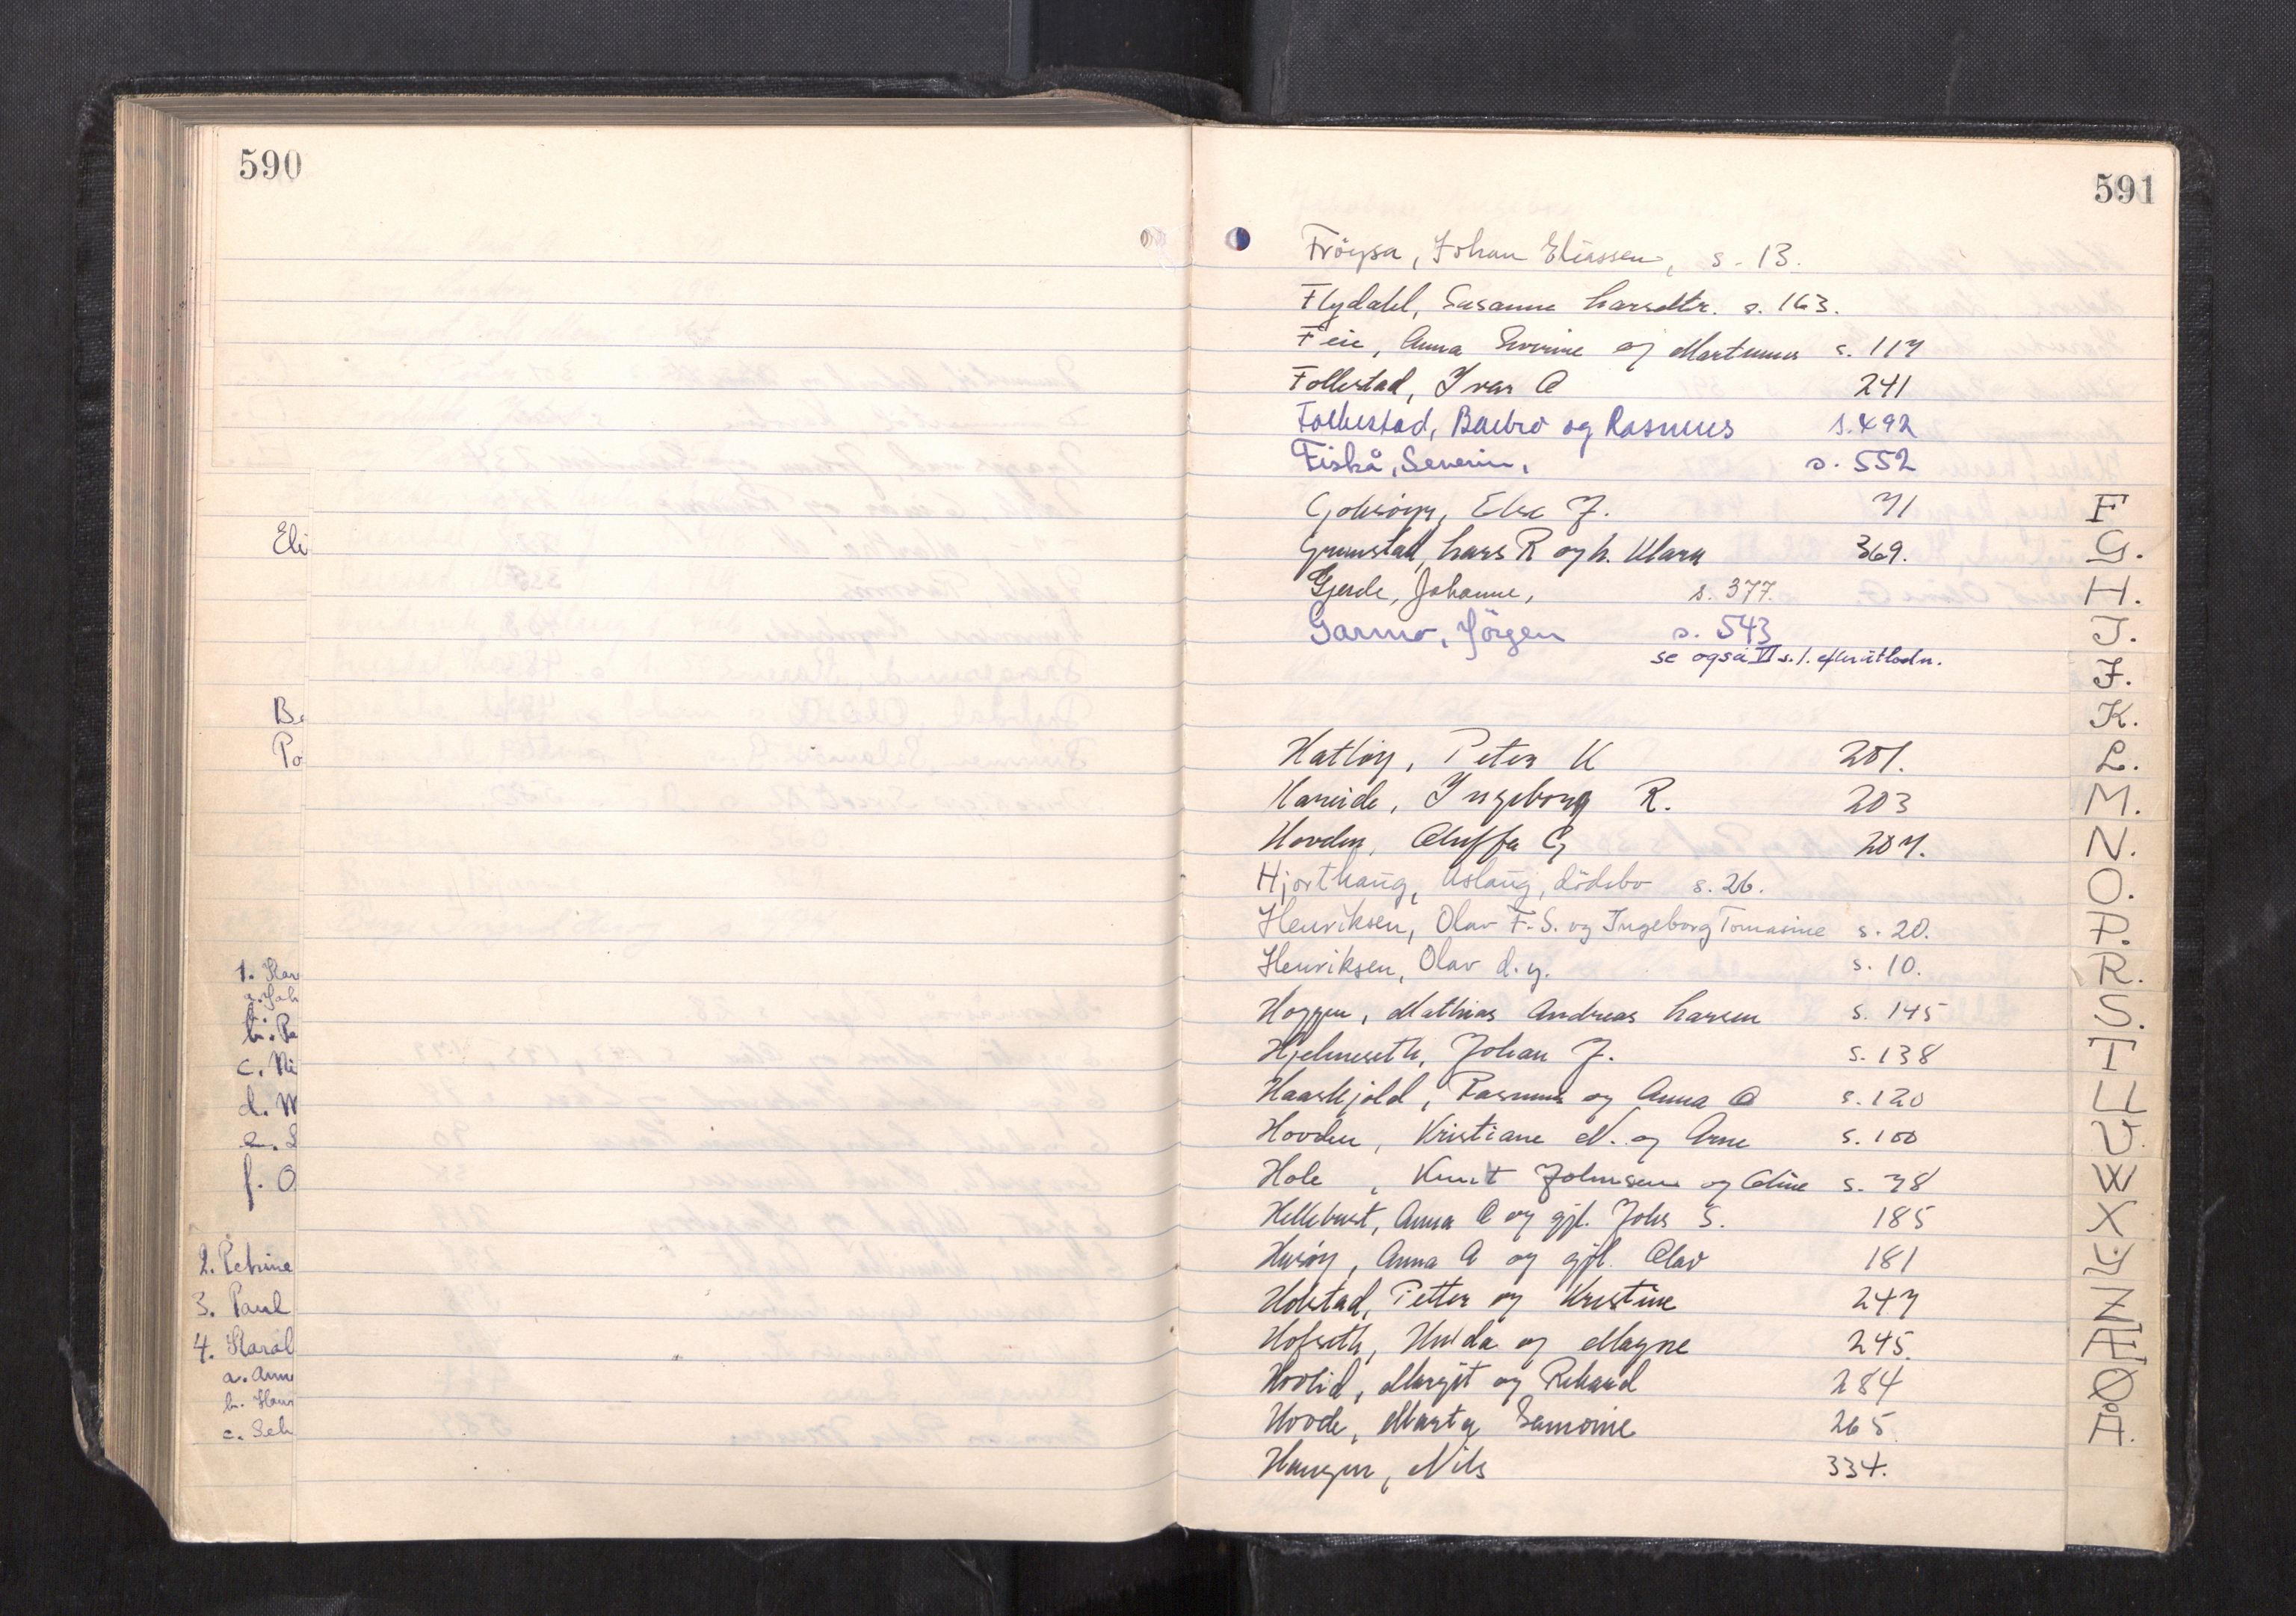 590
Eli
B.
Po
1. Kar
a. Joh
b. Pe
c. Ni
d. M
e. S
f. O
2. Petrine
3. Paul
4. Karal
a. Ann
b. Hans
c. Seh
591
Fröysa, Johan Eliassen, s. 13.
Flydahl, Susanne Larsdtr. s. 163.
Feie, Anna Severine og Martinus s. 117
Follestad, Ivar O 241
Follestad, Barbro og Rasmus s. 492
Fiskå, Severin, s. 552
Gjerde, Johanne, s. 377.
Grimstad, Lars R og h. Klara 369.
Garmo, Jörgen s. 543
se også VI s. 1. efter utlodn.
Hatløy, Peter K 201.
Hareide, Ingeborg R. 203
Hovden, Oluffa C 207.
Hjorthaug, Aslaug, dödsbo s. 26.
Henriksen, Olav F.S. og Ingeborg Tomasine s. 20.
Henriksen, Olav d.y. s. 10.
Haggen, Mathias Andreas Larsen s. 145
Hjelmeseth, Johan J. s. 138
Haaskjold, Rasmus og Anna O s. 120
Hovden, Kristiane N. og Arne s. 100
Hole, Knut Johnsen og Oline s. 78
Hellebust, Anna O og gjl. Johs S. 185
Husøy, Anna A og gjl. Olav 181
Holstad, Petter og Kristine 247
Hofseth, Hulda og Magne 245.
Hovlid, Margit og Rikard 284
Hovde, Marta Samoine 265.
Haugen, Nils 334.
F
G.
H.
I.
J.
K.
L.
M.
N.
O.
P.
R.
S.
T
U
V.
W
X
Y.
Z
Æ
Ø
Å.